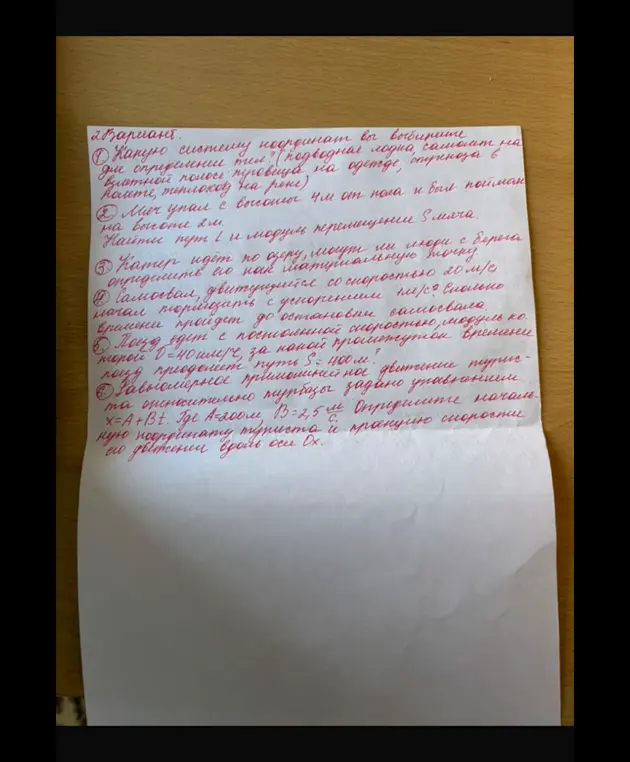 2 Вариант.
① Какую систему координат вы выберите
для определении тел? (подводная лодка, самолет на
взлетной полосе, пуговица на одежде, спутника в
полете, теплоход на реке)
② Мяч упал с высоты 4м от пола и был пойман
на высоте 2м.
Найти путь l и модуль перемещение S мяча.
③ Катер идёт по озеру, могут ли люди с берега
определить его как материальную точку.
④ Самосвал, двигующейся со скоростью 20 м/с
начал тормозить с ускорением 1м/с² Сколько
времени пройдет до остановки самосвала
⑤ Поезд едет с постоянной скоростью, модуль ко
торой υ=40км/ч, за какой промежуток времени
поезд преодолеет путь S=400м?
⑥ Равномерное прямолинейное движение турис-
та относительно турбазы задано уравнением
x=A+Bt. Где A=200м, B=2,5 м/с. Определите началь-
ную координату туриста и проекцию скорости
его движении вдоль оси Ox.